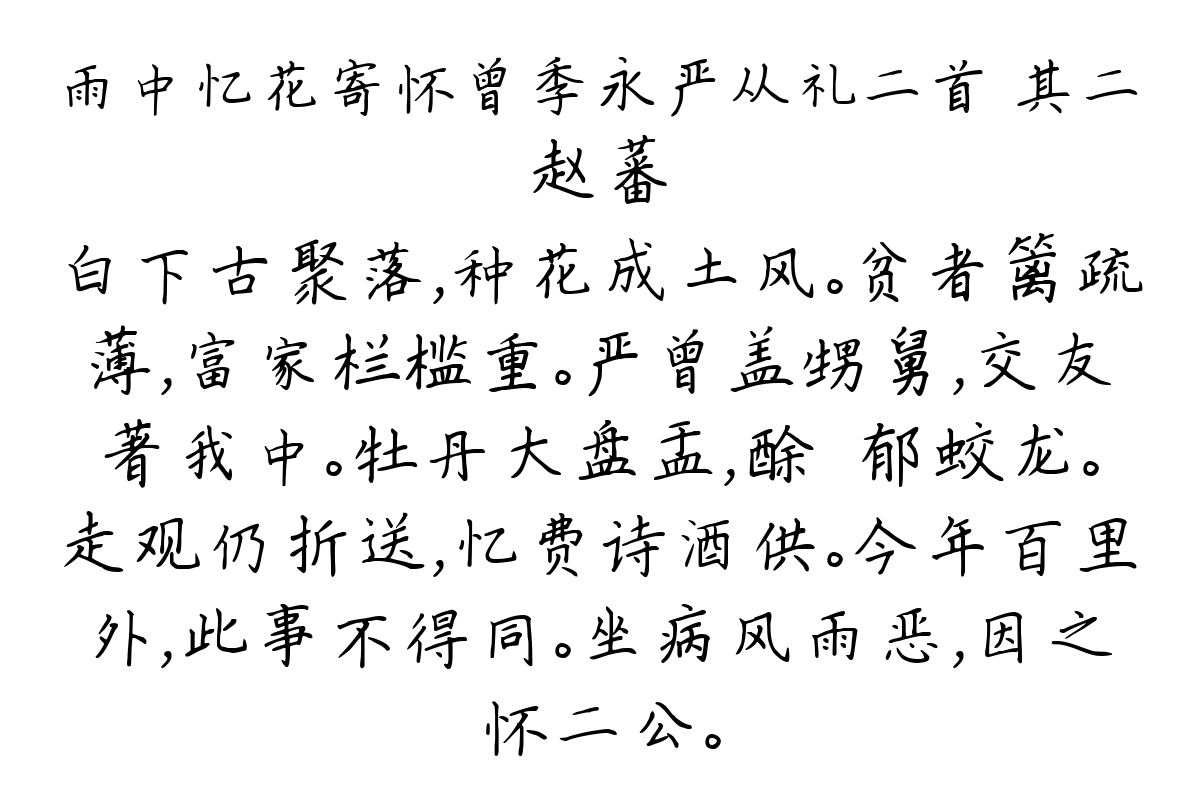 雨中忆花寄怀曾季永严从礼二首 其二
赵蕃
白下古聚落,种花成土风。贫者篱疏
薄,富家栏槛重。严曾盖甥舅,交友
著我中。牡丹大盘盂,酴 郁蛟龙。
走观仍折送,忆费诗酒供。今年百里
外,此事不得同。坐病风雨恶,因之
怀二公。